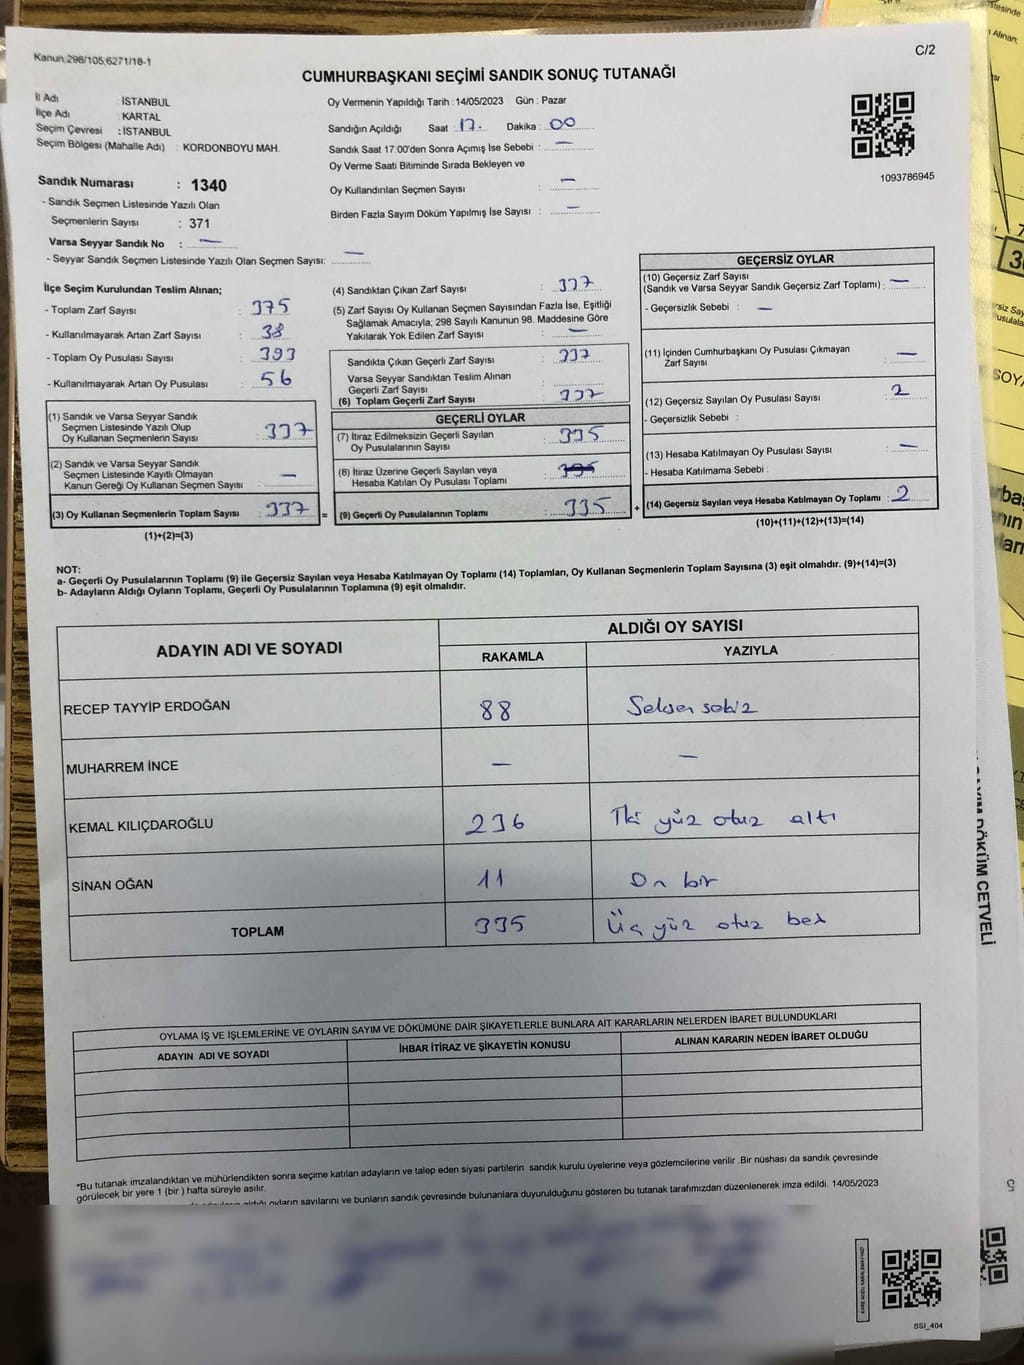 Kanun:298/105,6271/18-1
C/2
CUMHURBAŞKANI SEÇİMİ SANDIK SONUÇ TUTANAĞI
İl Adı : İSTANBUL
İlçe Adı : KARTAL
Seçim Çevresi : İSTANBUL
Seçim Bölgesi (Mahalle Adı) : KORDONBOYU MAH.
Sandık Numarası : 1340
- Sandık Seçmen Listesinde Yazılı Olan
Seçmenlerin Sayısı : 371
Varsa Seyyar Sandık No : —
- Seyyar Sandık Seçmen Listesinde Yazılı Olan Seçmen Sayısı: —
Oy Vermenin Yapıldığı Tarih : 14/05/2023 Gün : Pazar
Sandığın Açıldığı Saat : 17. Dakika : 00
Sandık Saat 17:00'den Sonra Açımış İse Sebebi : —
Oy Verme Saati Bitiminde Sırada Bekleyen ve
Oy Kullandırılan Seçmen Sayısı : —
Birden Fazla Sayım Döküm Yapılmış İse Sayısı : —
1093786945
İlçe Seçim Kurulundan Teslim Alınan;
- Toplam Zarf Sayısı : 375
- Kullanılmayarak Artan Zarf Sayısı : 38
- Toplam Oy Pusulası Sayısı : 393
- Kullanılmayarak Artan Oy Pusulası : 56
(1) Sandık ve Varsa Seyyar Sandık
Seçmen Listesinde Yazılı Olup
Oy Kullanan Seçmenlerin Sayısı : 337
(2) Sandık ve Varsa Seyyar Sandık
Seçmen Listesinde Kayıtlı Olmayan
Kanun Gereği Oy Kullanan Seçmen Sayısı : —
(3) Oy Kullanan Seçmenlerin Toplam Sayısı : 337 =
(1)+(2)=(3)
(4) Sandıktan Çıkan Zarf Sayısı : 337
(5) Zarf Sayısı Oy Kullanan Seçmen Sayısından Fazla İse, Eşitliği
Sağlamak Amacıyla; 298 Sayılı Kanunun 98. Maddesine Göre
Yakılarak Yok Edilen Zarf Sayısı : —
Sandıkta Çıkan Geçerli Zarf Sayısı : 337
Varsa Seyyar Sandıktan Teslim Alınan
Geçerli Zarf Sayısı :
(6) Toplam Geçerli Zarf Sayısı : 337
GEÇERLİ OYLAR
(7) İtiraz Edilmeksizin Geçerli Sayılan
Oy Pusulalarının Sayısı : 335
(8) İtiraz Üzerine Geçerli Sayılan veya
Hesaba Katılan Oy Pusulası Toplamı :
(9) Geçerli Oy Pusulalarının Toplamı : 335 +
GEÇERSİZ OYLAR
(10) Geçersiz Zarf Sayısı
(Sandık ve Varsa Seyyar Sandık Geçersiz Zarf Toplamı) : —
- Geçersizlik Sebebi : —
(11) İçinden Cumhurbaşkanı Oy Pusulası Çıkmayan
Zarf Sayısı : —
(12) Geçersiz Sayılan Oy Pusulası Sayısı : 2
- Geçersizlik Sebebi :
(13) Hesaba Katılmayan Oy Pusulası Sayısı : —
- Hesaba Katılmama Sebebi :
(14) Geçersiz Sayılan veya Hesaba Katılmayan Oy Toplamı : 2
(10)+(11)+(12)+(13)=(14)
NOT:
a- Geçerli Oy Pusulalarının Toplamı (9) ile Geçersiz Sayılan veya Hesaba Katılmayan Oy Toplamı (14) Toplamları, Oy Kullanan Seçmenlerin Toplam Sayısına (3) eşit olmalıdır. (9)+(14)=(3)
b- Adayların Aldığı Oyların Toplamı, Geçerli Oy Pusulalarının Toplamına (9) eşit olmalıdır.
ADAYIN ADI VE SOYADI
ALDIĞI OY SAYISI
RAKAMLA YAZIYLA
RECEP TAYYİP ERDOĞAN 88 Seksen sekiz
MUHARREM İNCE — —
KEMAL KILIÇDAROĞLU 236 İki yüz otuz altı
SİNAN OĞAN 11 On bir
TOPLAM 335 Üç yüz otuz beş
OYLAMA İŞ VE İŞLEMLERİNE VE OYLARIN SAYIM VE DÖKÜMÜNE DAİR ŞİKAYETLERLE BUNLARA AİT KARARLARIN NELERDEN İBARET BULUNDUKLARI
ADAYIN ADI VE SOYADI İHBAR İTİRAZ VE ŞİKAYETİN KONUSU ALINAN KARARIN NEDEN İBARET OLDUĞU
*Bu tutanak imzalandıktan ve mühürlendikten sonra seçime katılan adayların ve talep eden siyasi partilerin sandık kurulu üyelerine veya gözlemcilerine verilir .Bir nüshası da sandık çevresinde
görülecek bir yere 1 (bir ) hafta süreyle asılır.
aldığı oyların sayılarını ve bunların sandık çevresinde bulunanlara duyurulduğunu gösteren bu tutanak tarafımızdan düzenlenerek imza edildi. 14/05/2023
SSI_404
SAYIM DÖKÜM CETVELİ